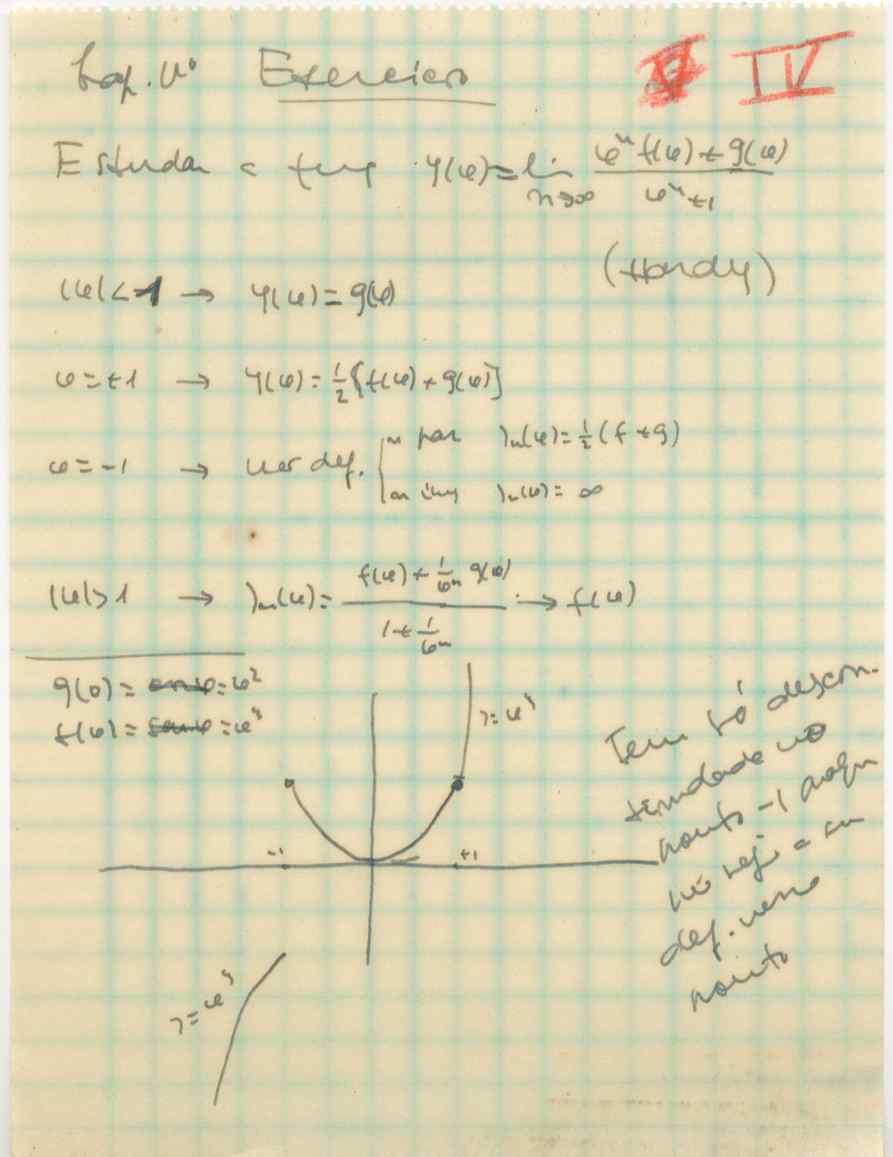 Cap. Exercício IV
Estudar a funç y(x) = lim n→∞ (xⁿ f(x) + g(x)) / (xⁿ + 1)
(Hardy)
|x| < 1 → y(x) = g(x)
x = +1 → y(x) = ½ [f(x) + g(x)]
x = -1 → def. { n par yₙ(x) = ½ (f + g)
n ímp yₙ(x) = ∞
|x| > 1 → yₙ(x) = (f(x) + 1/xⁿ g(x)) / (1 + 1/xⁿ) → f(x)
g(x) = x²
f(x) = x³
y = x³
-1 +1
y = x³
Tem só descon-
tinuidade no
ponto -1
def. nesse
ponto